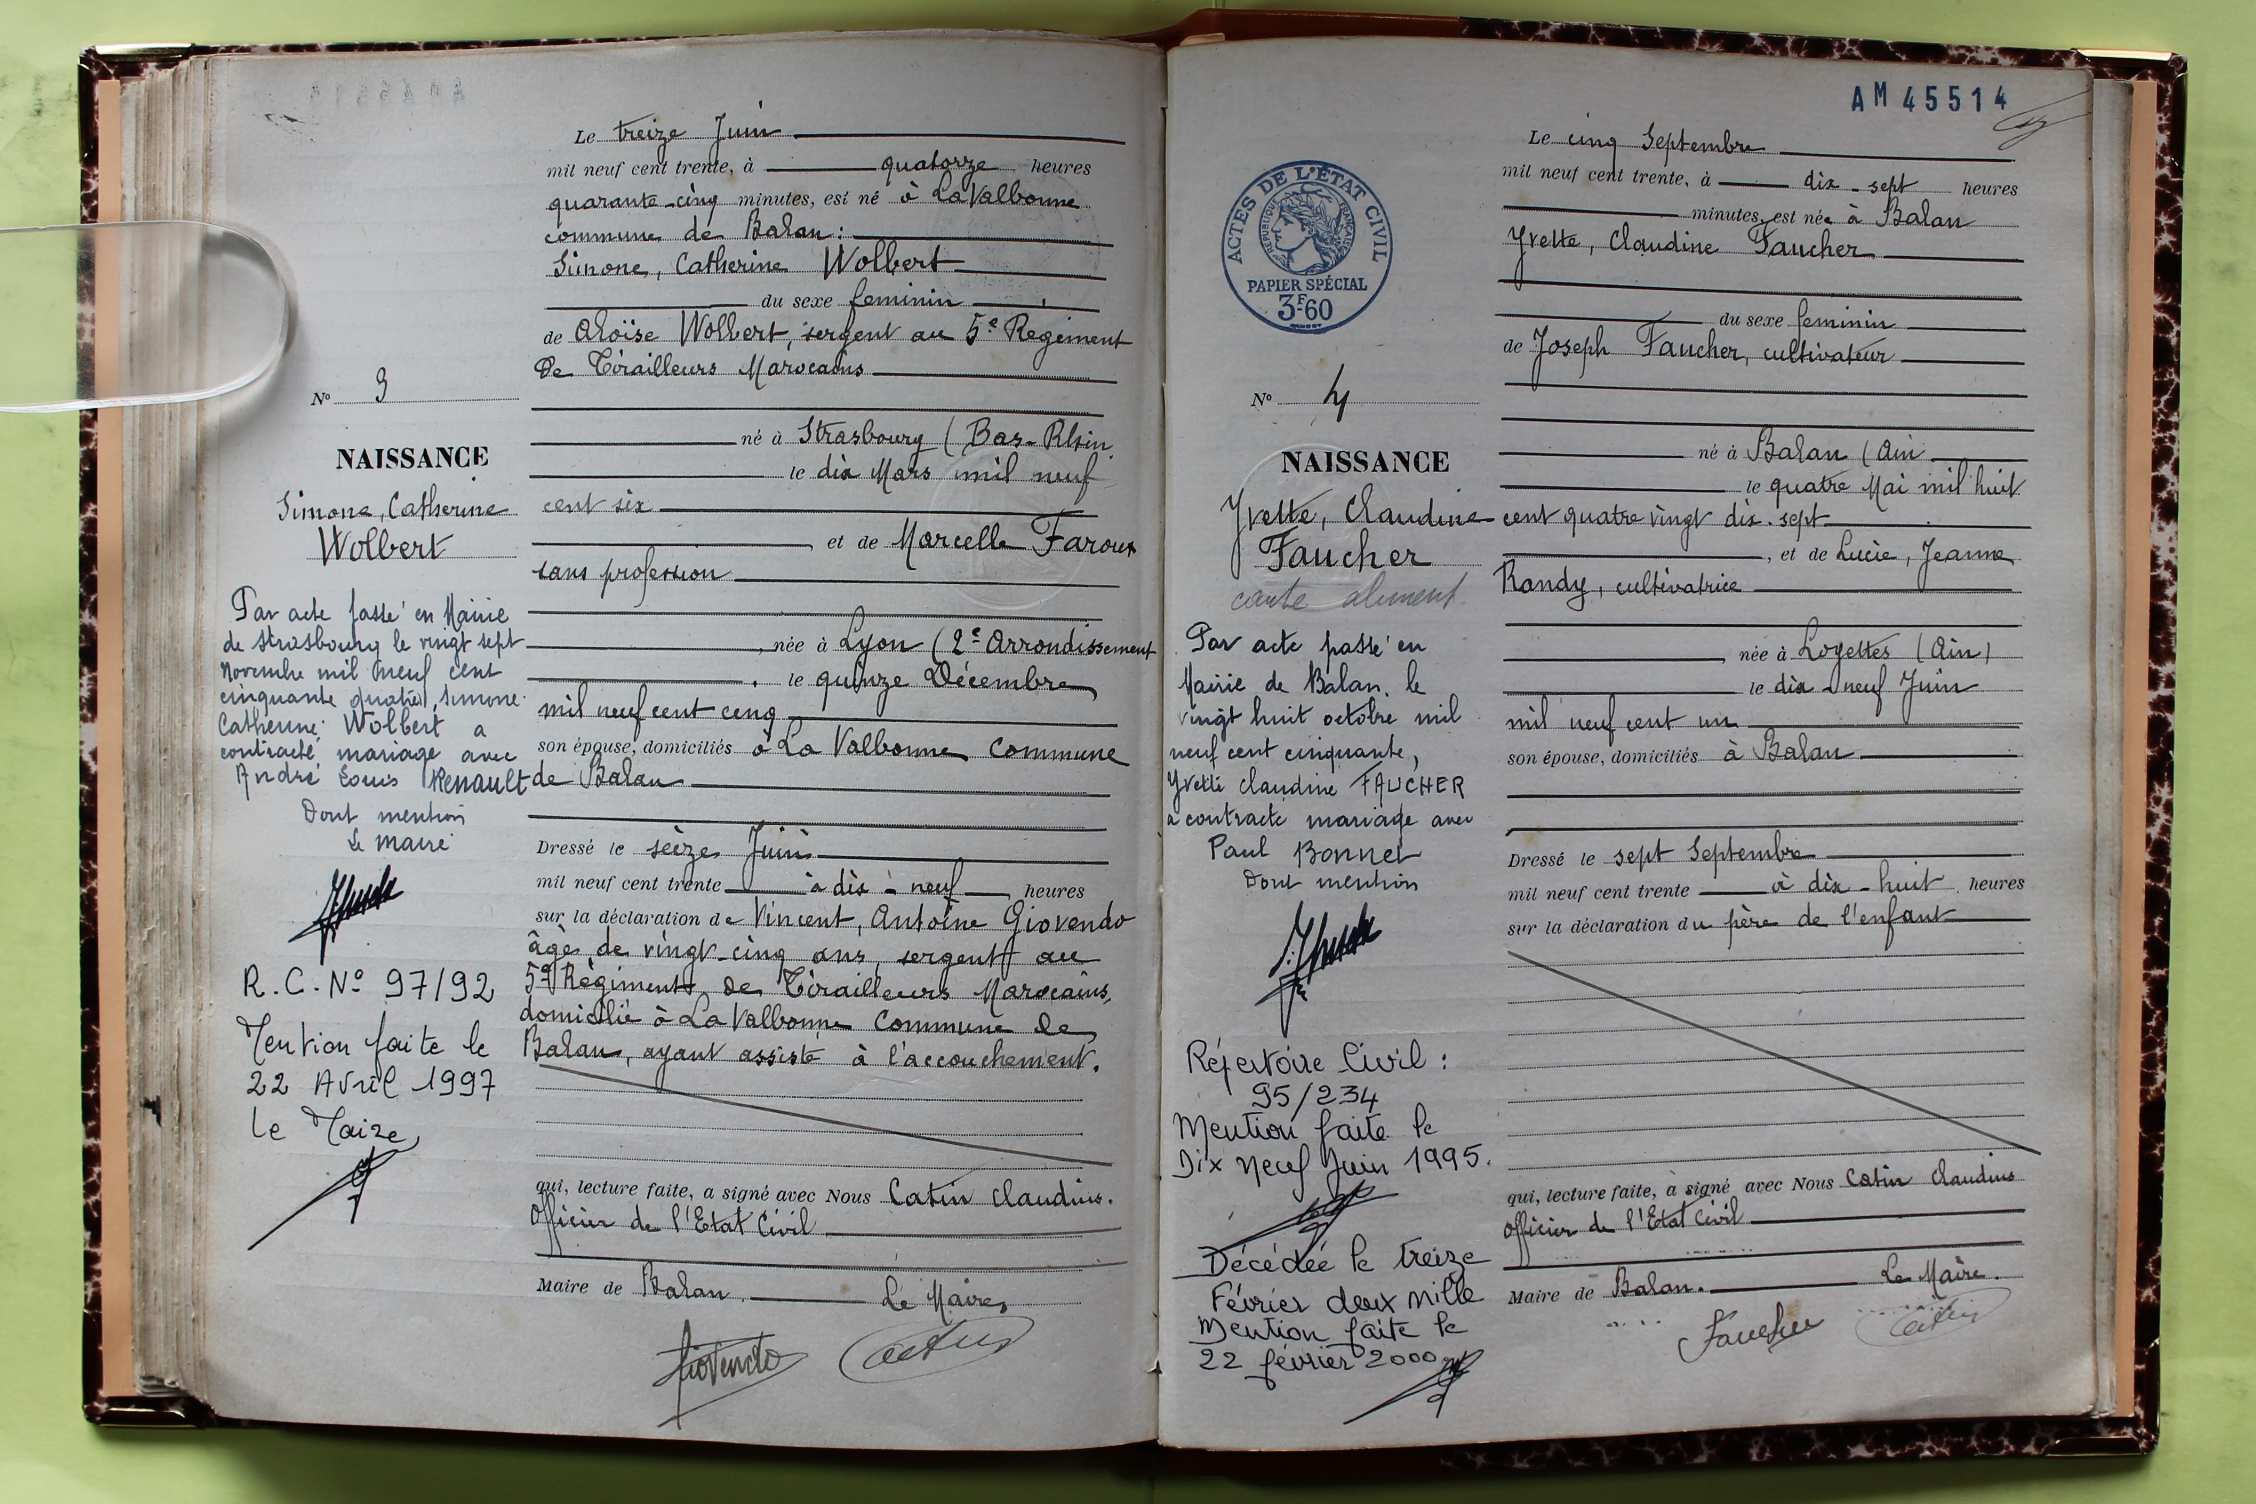 Le treize Juin
mil neuf cent trente, à quatorze heures
quarante-cinq minutes, est né à La Valbonne
commune de Balan:
Simone, Catherine Wolbert
du sexe feminin
de Aloïse Wolbert, sergent au 5e Régiment
De Tirailleurs Marocains
né à Strasbourg (Bas-Rhin
le dix Mars mil neuf
cent six
et de Marcelle Faroux
sans profession
née à Lyon (2e Arrondissement
le quinze Décembre
mil neuf cent cinq
son épouse, domiciliés à La Valbonne commune
de Balan
Dressé le seize Juin
mil neuf cent trente à dix-neuf heures
sur la déclaration de Vincent, Antoine Giovendo
âgé de vingt-cinq ans, sergent au
5e Régiment de Tirailleurs Marocains,
domicilié à La Valbonne Commune de
Balan, ayant assisté à l'accouchement.
qui, lecture faite, a signé avec Nous Catin Claudius.
Officier de l'Etat Civil
Maire de Balan. Le Maire,
Giovendo Catin
No 3
NAISSANCE
Simone, Catherine
Wolbert
Par acte passé en Mairie
de Strasbourg le vingt sept
Novembre mil neuf cent
cinquante quatre, Simone
Catherine Wolbert a
contracté mariage avec
André Louis Renault
Dont mention
Le maire
R.C. No 97/92
Mention faite le
22 Avril 1997
Le Maire,
AM 45514
ACTES DE L'ÉTAT CIVIL
RÉPUBLIQUE FRANÇAISE
PAPIER SPÉCIAL
3F60
No 4
NAISSANCE
Yvette, Claudine
Faucher
carte aliment.
Par acte passé en
Mairie de Balan, le
vingt huit octobre mil
neuf cent cinquante,
Yvette Claudine FAUCHER
a contracté mariage avec
Paul Bonnet
Dont mention
Répertoire Civil :
95/234
Mention faite le
Dix neuf Juin 1995.
Décédée le treize
Février deux mille
Mention faite le
22 février 2000
Le cinq Septembre
mil neuf cent trente, à dix-sept heures
minutes, est née à Balan
Yvette, Claudine Faucher
du sexe feminin
de Joseph Faucher, cultivateur
né à Balan (Ain
le quatre Mai mil huit
cent quatre vingt dix-sept
, et de Lucie, Jeanne
Randy, cultivatrice
née à Loyettes (Ain)
le dix-neuf Juin
mil neuf cent un
son épouse, domiciliés à Balan
Dressé le sept Septembre
mil neuf cent trente à dix-huit heures
sur la déclaration du père de l'enfant
qui, lecture faite, a signé avec Nous Catin Claudius
Officier de l'Etat Civil
Maire de Balan. Le Maire.
Faucher Catin